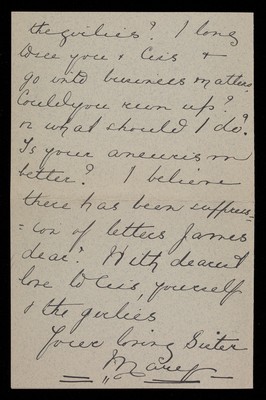 the girlies? I long
to see you & Ciss &
go into business matters
Could you run up?
or what should I do?
Is your aneurism
better? I believe
there has been suppress-
=ion of letters James
dear! With dearest
love to Ciss, yourself
& the girlies
Your loving Sister
"Mary"